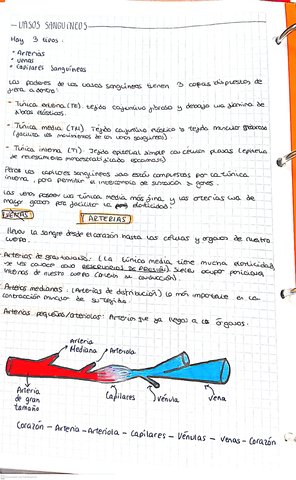 - VASOS SANGUÍNEOS
Hay 3 tipos:
· Arterias
· venas
· Capilares Sanguíneos
Las paredes de los vasos sanguíneos tienen 3 capas dispuestas de
fuera a dentro:
- Túnica externa (TE): tejido conjuntivo fibroso y debajo una lámina de
fibras elásticas.
- Túnica media (TM): Tejido conjuntivo elástico y tejido muscular
(facilita los movimientos de los vasos sanguíneos)
- Túnica interna (TI): Tejido epitelial simple con células planas (epitelio
de revestimiento monoestratificado escamoso)
Pero los capilares sanguíneos solo están compuestos por la túnica
interna, para permitir el intercambio de sustancias y gases.
Las venas poseen una túnica media más fina, y las arterias una de
mayor grosor para facilitar la elasticidad.
VENAS
ARTERIAS
llevar la sangre desde el corazón hasta las células y órganos de nuestro
cuerpo.
· Arterias de gran tamaño: (La túnica media tiene mucha elasticidad,
se les conoce como Suele ocupar
internas de nuestro cuerpo
· Arterias medianas: (Arterias de distribución) lo más importante es la
contracción muscular de su tejido.
· Arterias pequeñas/arteriolas: Arterias que ya llegas a los órganos.
Arteria
Mediana
Arteriola
Arteria
de gran
tamaño
Capilares
Vénula
Vena
Corazón - Arteria - Arteriola - Capilares - Vénulas - Venas - Corazón